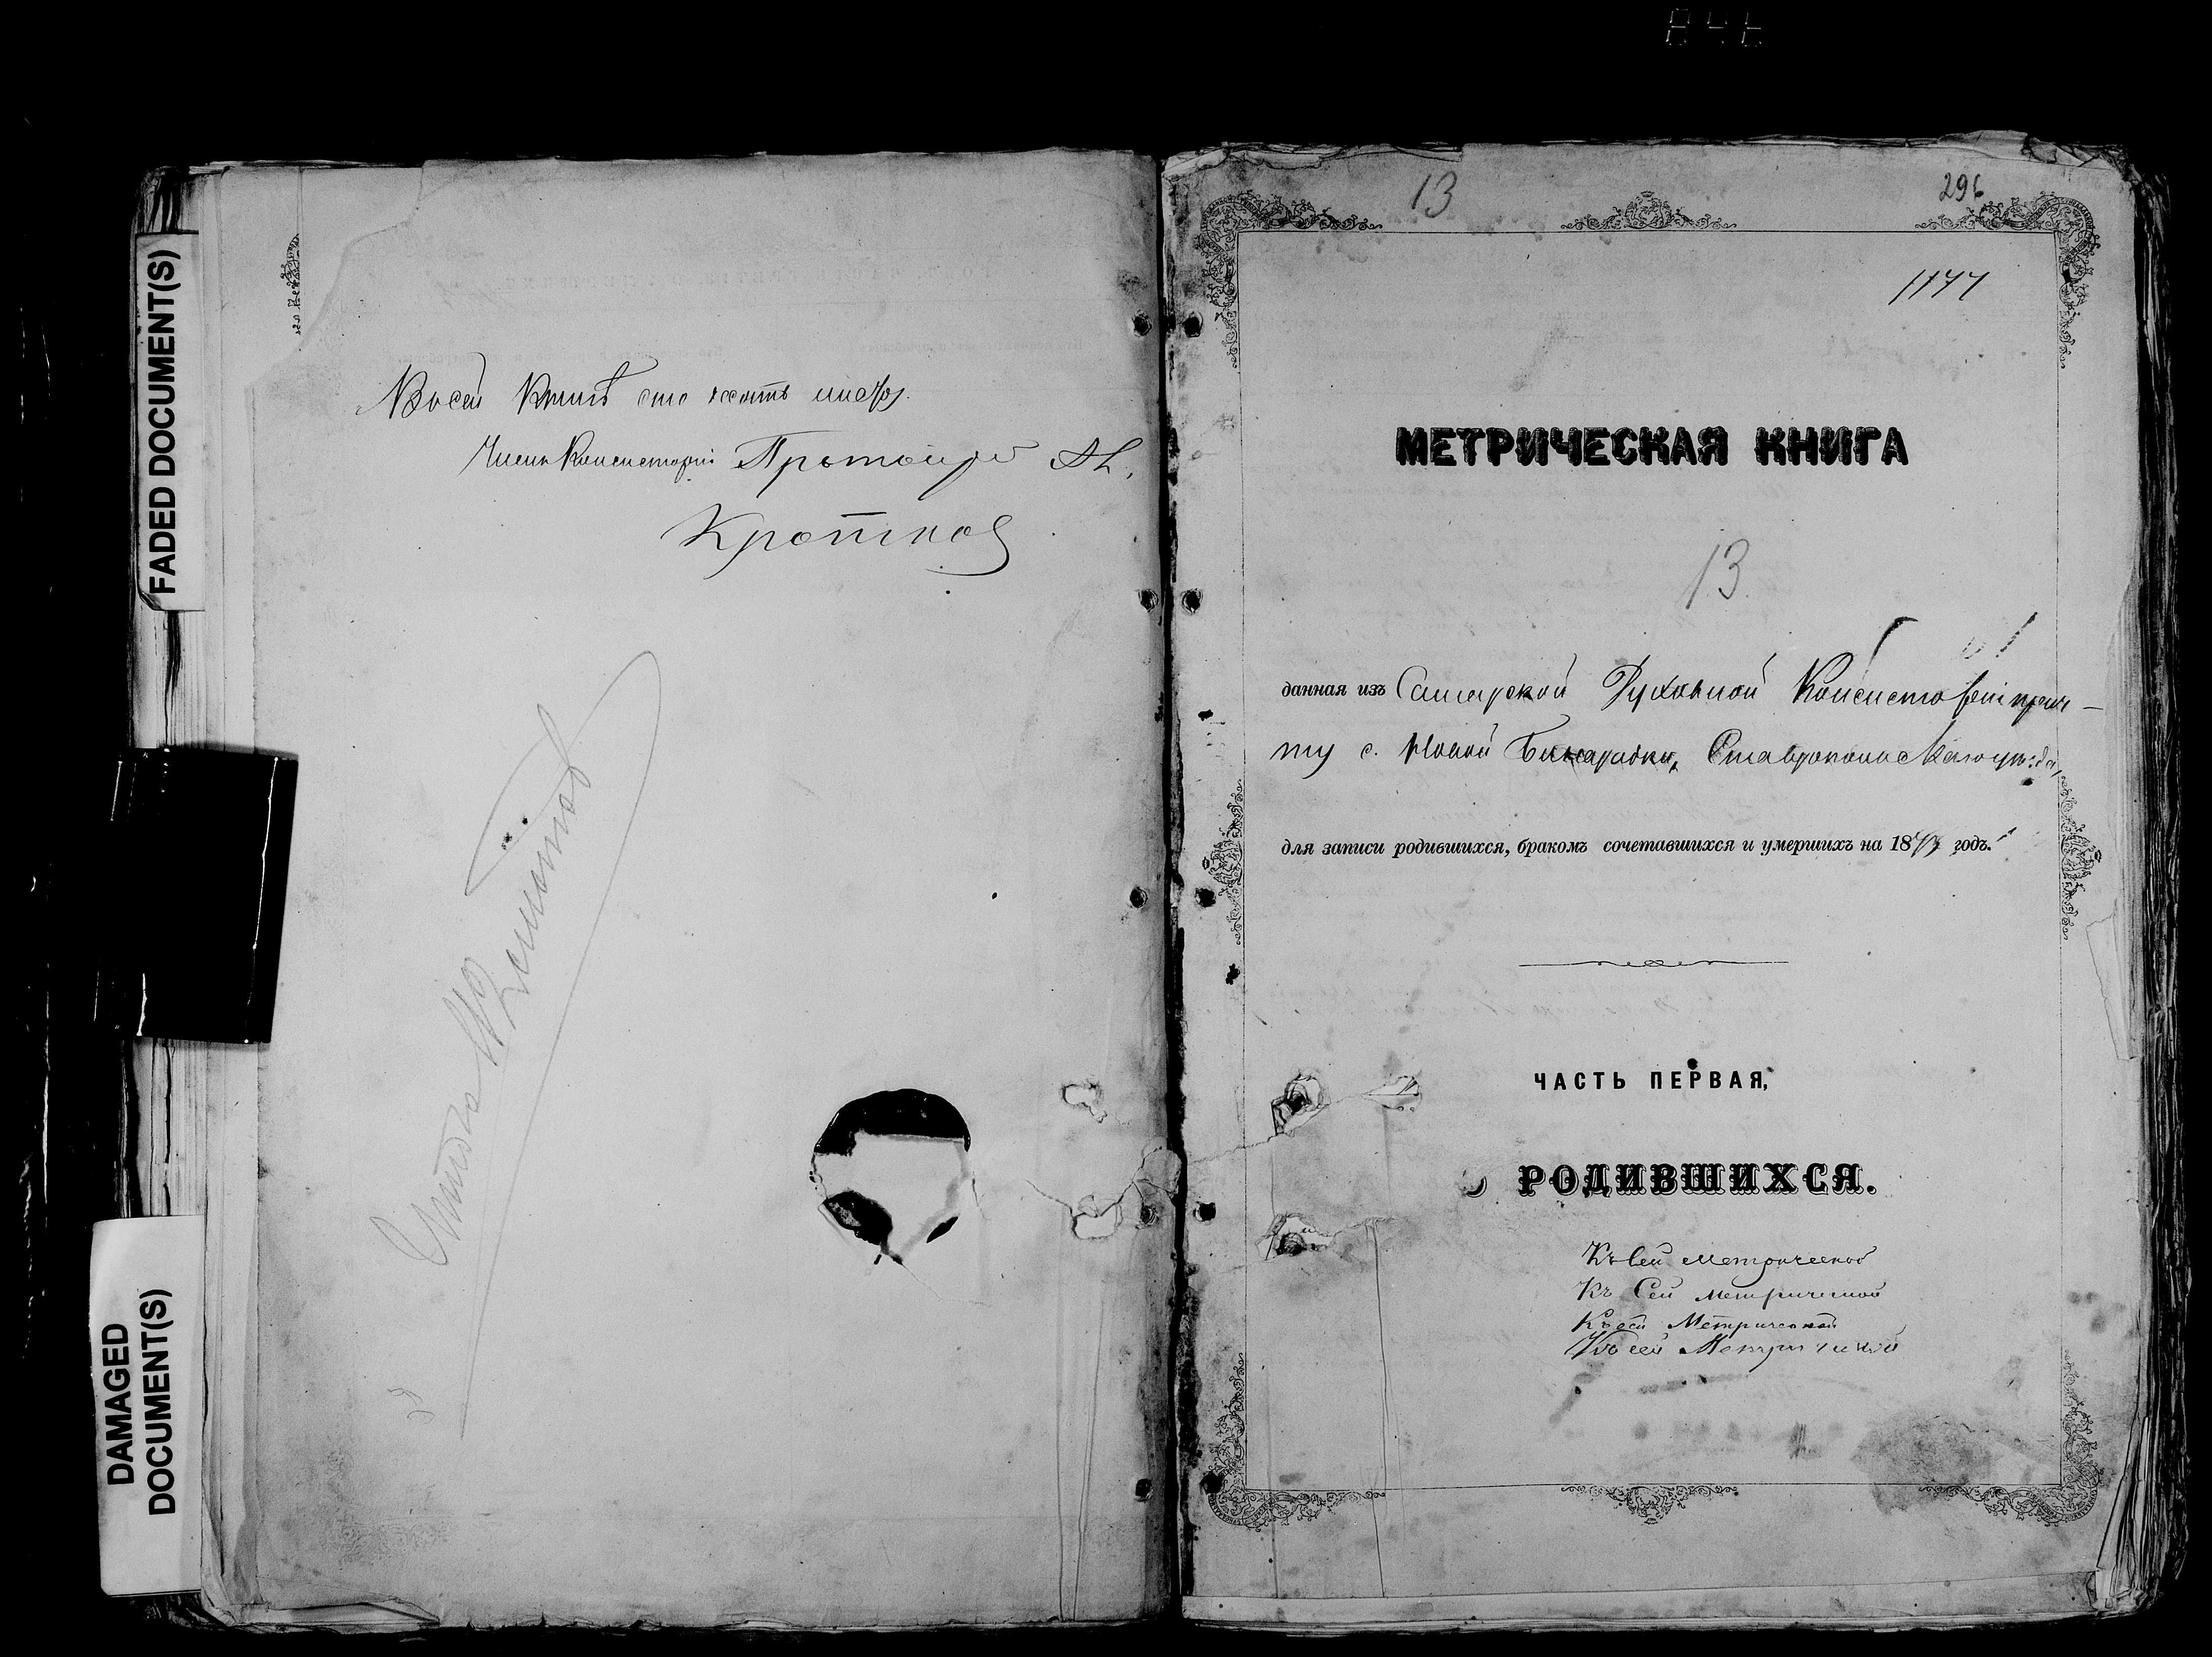 846
FADED DOCUMENT(S)
DAMAGED
DOCUMENT(S)
Въ сей Книгѣ сто десять листов.
Членъ Консисторіи Протоіерей
Кротков
13
296
1177
МЕТРИЧЕСКАЯ КНИГА
13
данная изъ Самарской Духовной Консисторіи прич-
ту с. Новой Бинарадки, Ставропольскаго уѣзда,
для записи родившихся, бракомъ сочетавшихся и умершихъ на 18 годъ.
ЧАСТЬ ПЕРВАЯ,
О РОДИВШИХСЯ.
Къ Сей метрической
Къ Сей Метрической
Къ сей Метрической
Къ сей Метрической